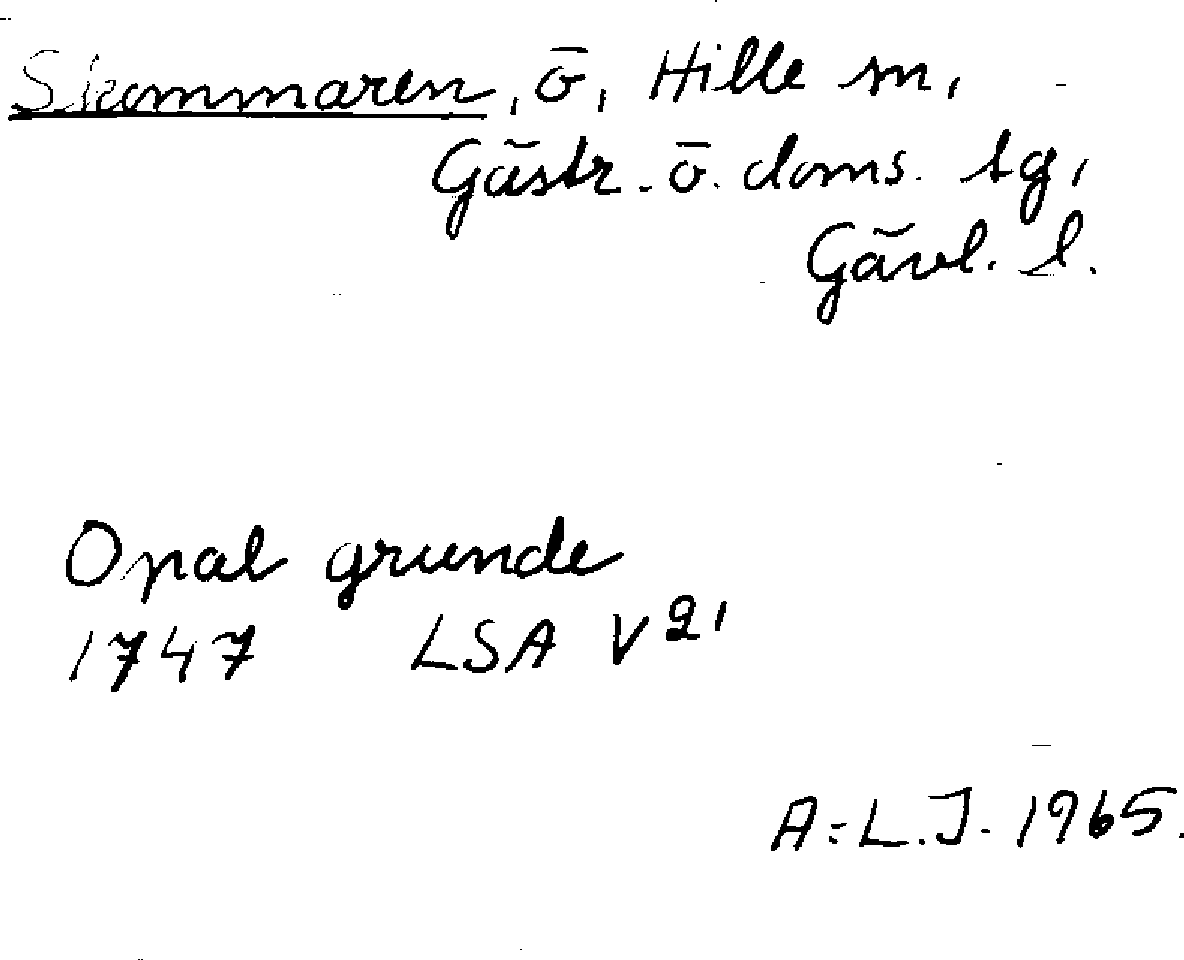 Skommaren, ö, Hille sn,
Gästr. ö. doms. tg,
Gävl. l.
Opal grunde
1747 LSA V21
A:L.J. 1965.